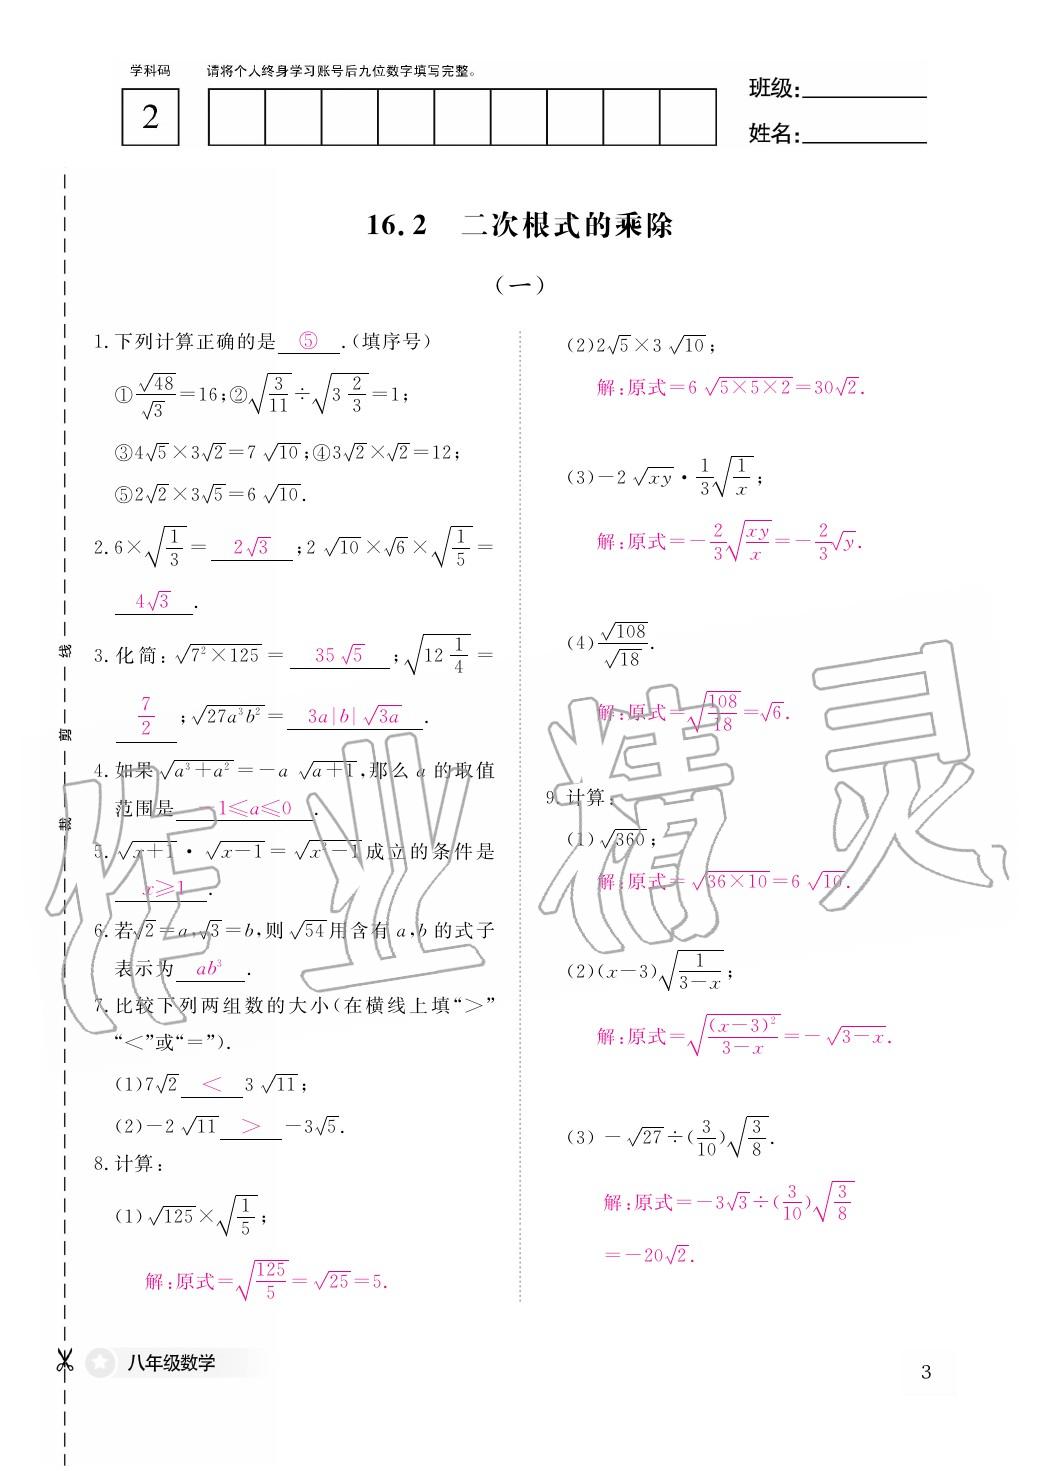 学科码 请将个人终身学习账号后九位数字填写完整。
2
班级:
姓名:
16.2 二次根式的乘除
(一)
1.下列计算正确的是 ⑤ .(填序号)
①√48/√3=16;②√(3/11)÷√(3 2/3)=1;
③4√5×3√2=7√10;④3√2×√2=12;
⑤2√2×3√5=6√10.
2.6×√(1/3)= 2√3 ;2√10×√6×√(1/5)=
4√3 .
3.化简:√(7²×125)= 35√5 ;√(12 1/4)=
7/2 ;√(27a³b²)= 3a|b|√(3a) .
4.如果√(a³+a²)=-a√(a+1),那么a的取值
范围是 -1≤a≤0 .
5.√(x+1)·√(x-1)=√(x²-1)成立的条件是
x≥1 .
6.若√2=a,√3=b,则√54用含有a,b的式子
表示为 ab³ .
7.比较下列两组数的大小(在横线上填“>”
“<”或“=”).
(1)7√2 < 3√11;
(2)-2√11 > -3√5.
8.计算:
(1)√125×√(1/5);
解:原式=√(125/5)=√25=5.
(2)2√5×3√10;
解:原式=6√(5×5×2)=30√2.
(3)-2√(xy)·1/3√(1/x);
解:原式=-2/3√(xy/x)=-2/3√y.
(4)√108/√18.
解:原式=√(108/18)=√6.
9.计算:
(1)√360;
解:原式=√(36×10)=6√10.
(2)(x-3)√(1/(3-x));
解:原式=√((x-3)²/(3-x))=-√(3-x).
(3)-√27÷(3/10)√(3/8).
解:原式=-3√3÷(3/10)√(3/8)
=-20√2.
线
剪
裁
作业精灵
八年级数学
3